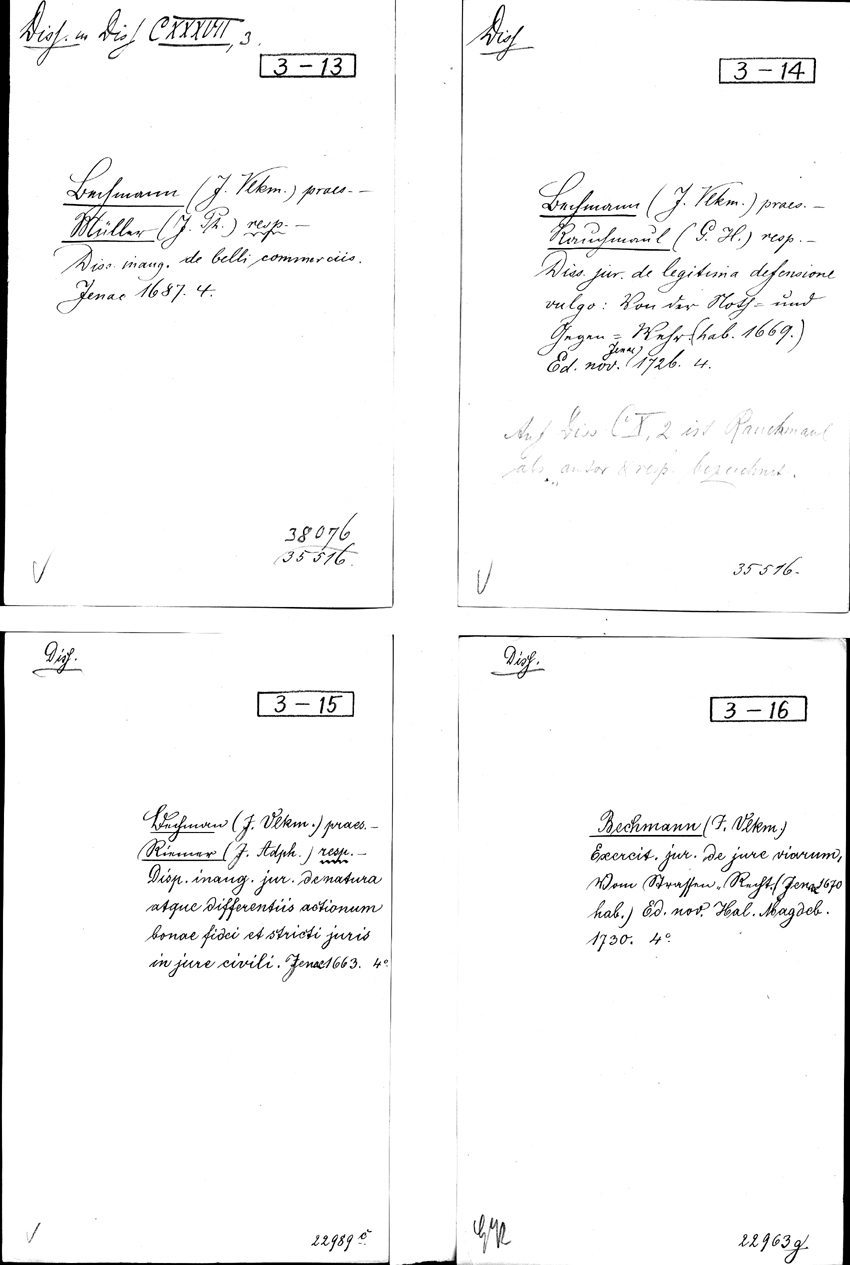 Diss. u Diss CXXXVII, 3.
3 – 13
Bechmann (J. Vlkm.) praes. –
Müller (J. Ph.) resp. –
Diss. inaug. de belli commerciis.
Jenae 1687. 4.
38076
35516.
Diss
3 – 14
Bechmann (J. Vlkm.) praes. –
Rauchmaul (G. H.) resp. –
Diss. jur. de legitima defensione
vulgo: Von der Noth= und
Gegen = Wehr. (hab. 1669.)
Ed. nov. Jenae 1726. 4.
Auf Diss CX, 2 ist Rauchmaul
als "autor & resp. bezeichnet.
35516.
Diss.
3 – 15
Bechman (J. Vlkm.) praes. –
Riemer (J. Adph.) resp. –
Disp. inaug. jur. de natura
atque differentiis actionum
bonae fidei et stricti juris
in jure civili. Jenae 1663. 4°
22989 c
Diss.
3 – 16
Bechmann (J. Vlkm.)
Exercit. jur. de jure viarum,
Vom Strassen-Recht. (Jenae 1670
hab.) Ed. nov. Hal. Magdeb.
1730. 4°
22963g